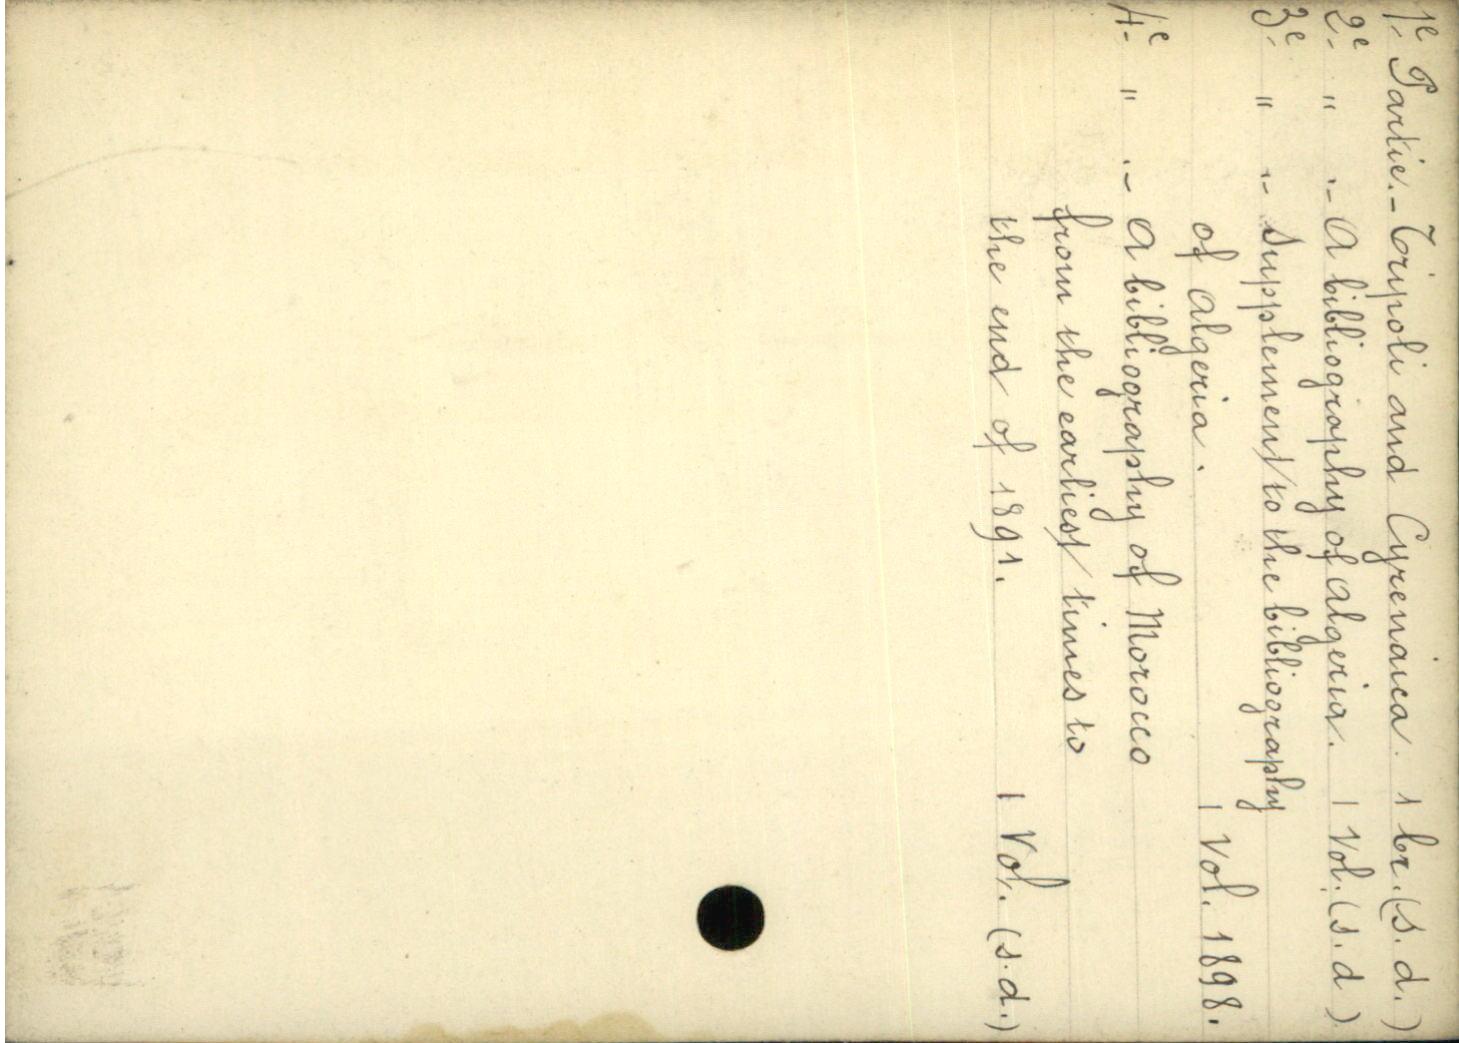 1e Partie.- Tripoli and Cyrenaica. 1 br. (s. d.)
2e " .- A bibliography of Algeria. 1 Vol. (s. d)
3e " .- Supplement to the bibliography
of Algeria. 1 Vol. 1898.
4e " .- A bibliography of Morocco
from the earliest times to
the end of 1891. 1 Vol. (s.d.)